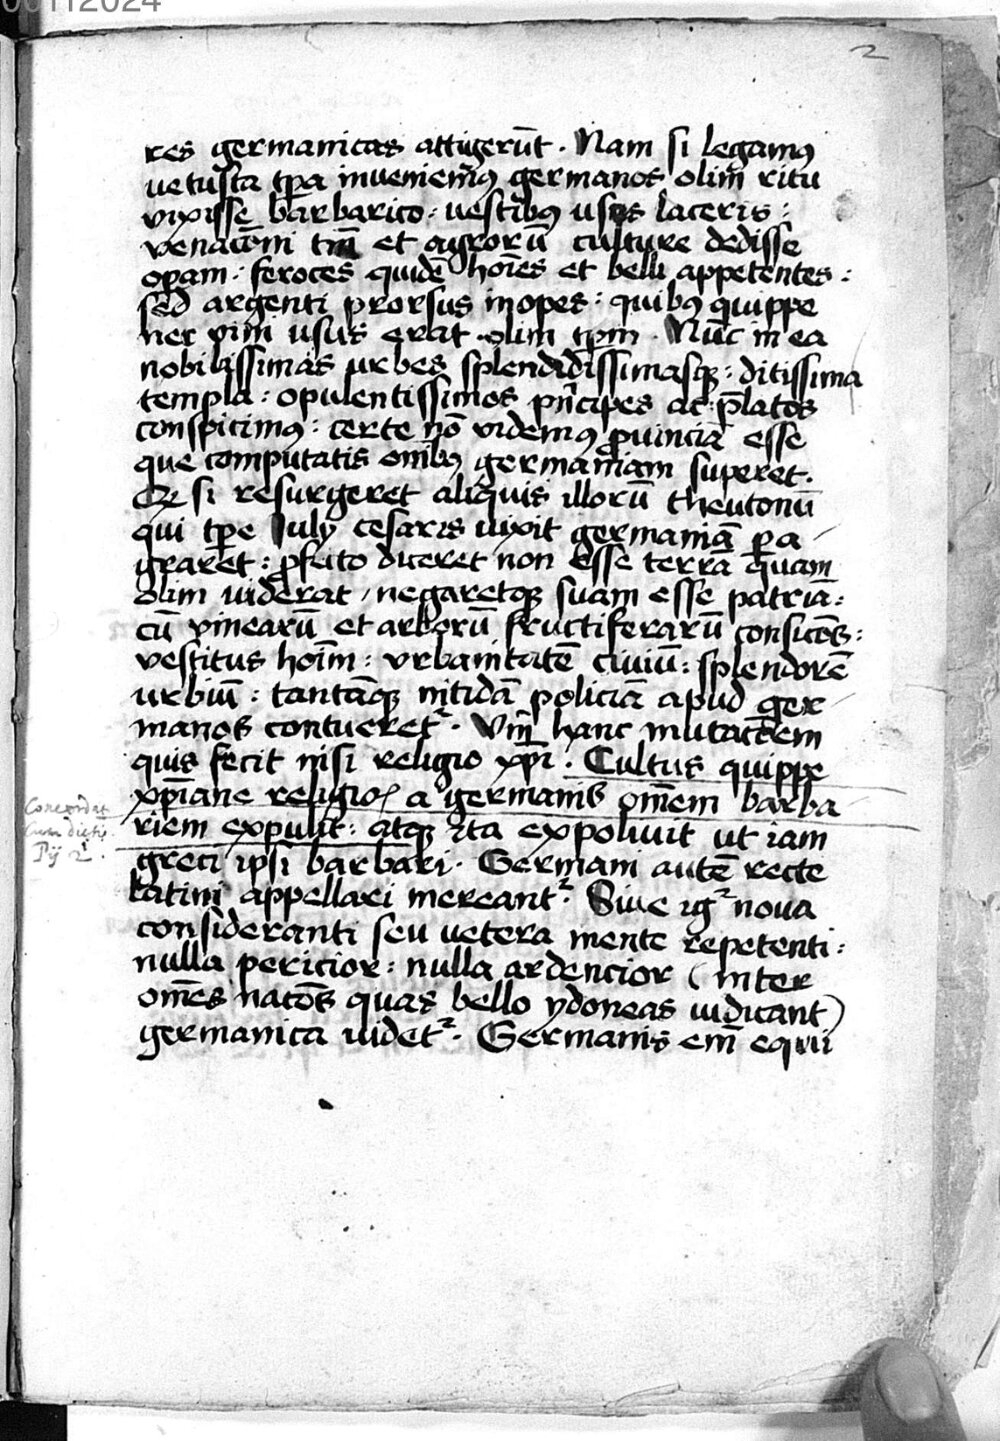 00112024
2
res germanicas attigerūt. Nam si legamꝰ
vetusta tp̄a inveniem̄ꝰ germanos olim̄ ritu
vixisse barbarico: vestibꝰ usos laceris:
venatōni tm̄ et agrorū culture dedisse
opam: feroces quidē hoīes et belli appetentes:
sed argenti prorsus inopes: quibꝰ quippe
nec vini usus erat olim tpm. Nūc in ea
nobilissimas urbes splendidissimasqꝫ: ditissima
templa: opulentissimos pn̄cipes ac p̄latos
conspicimꝰ: certe nō videmꝰ ꝓuinciā esse
que computatis omībꝰ germaniam superet.
Qꝫ si resurgeret aliquis illorū theutonū
qui tp̄e July cesaris vixit germaniā ꝑa
graret: ꝓfecto diceret non esse terrā quam
olim viderat / negaretqꝫ suam esse patriā:
cū vinearū et arborū fructiferarū consicōēs:
vestitus hoīm: vrbanitatē civiū: splendorē
urbiū: tantāqꝫ nitidā policiā apud ger
manos contueretᷣ. Vm̄ hanc mutatōem
quis fecit nisi religio xp̄i. Cultus quippe
xp̄iane religiōis a germanis om̄em barba
riem expulit: atqꝫ ita expolivit ut iam
greci ipsi barbari. Germani autē recte
latini appellari mereantᷣ. Sive igᷣ nova
consideranti seu vetera mente repetenti:
nulla pericior: nulla ardencior (inter
om̄es natōēs quas bello ydoneas iudicant)
germanica videtᷣ. Germanis em̄ equi
Concordat
cum dictis
Pij 2ⁱ.